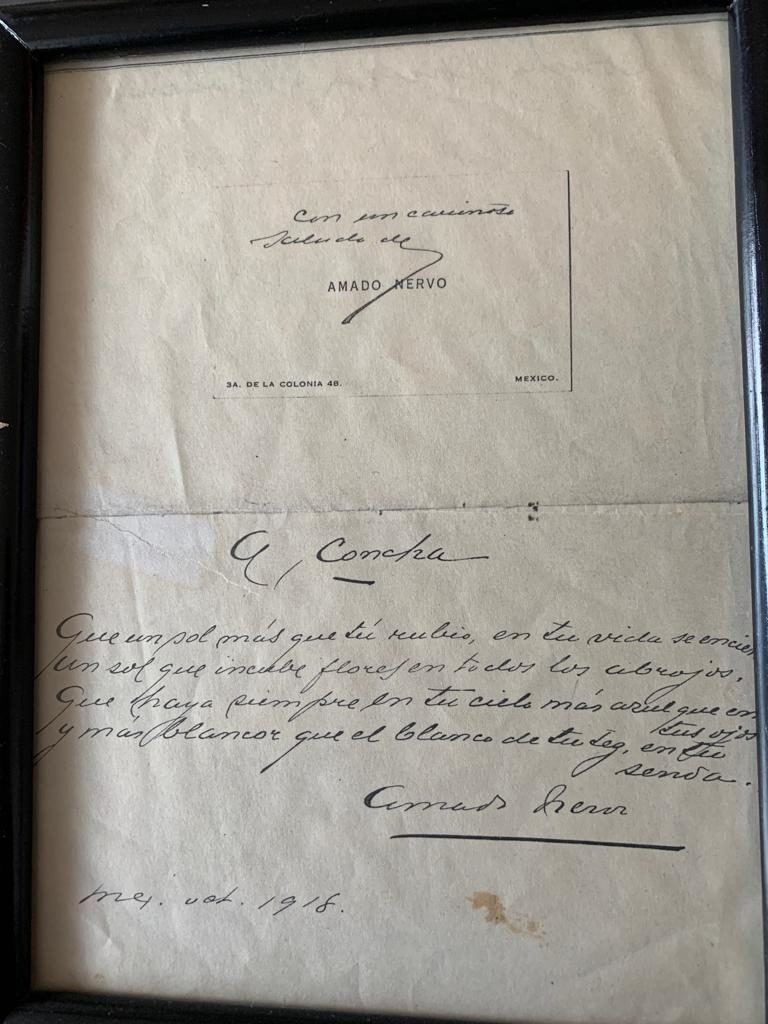 Con un cariñoso
saludo de
AMADO NERVO
3A. DE LA COLONIA 48.
MEXICO.
A, Concha
Que un sol más que tú rubio, en tu vida se encien
un sol que incube flores en todos los abrojos.
Que haya siempre en tu cielo más azul que en
tus ojos
y más blancor que el blanco de tu tez, en tu
senda.
Amado Nervo
Mex. oct. 1918.